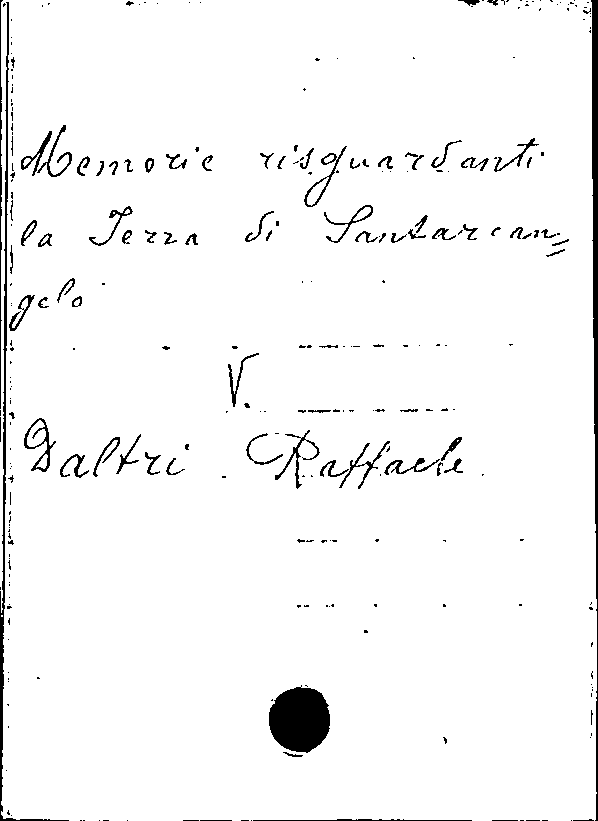 Memorie risguardanti
la Terra di Santarcan=
gelo
V.
Daltri Raffaele